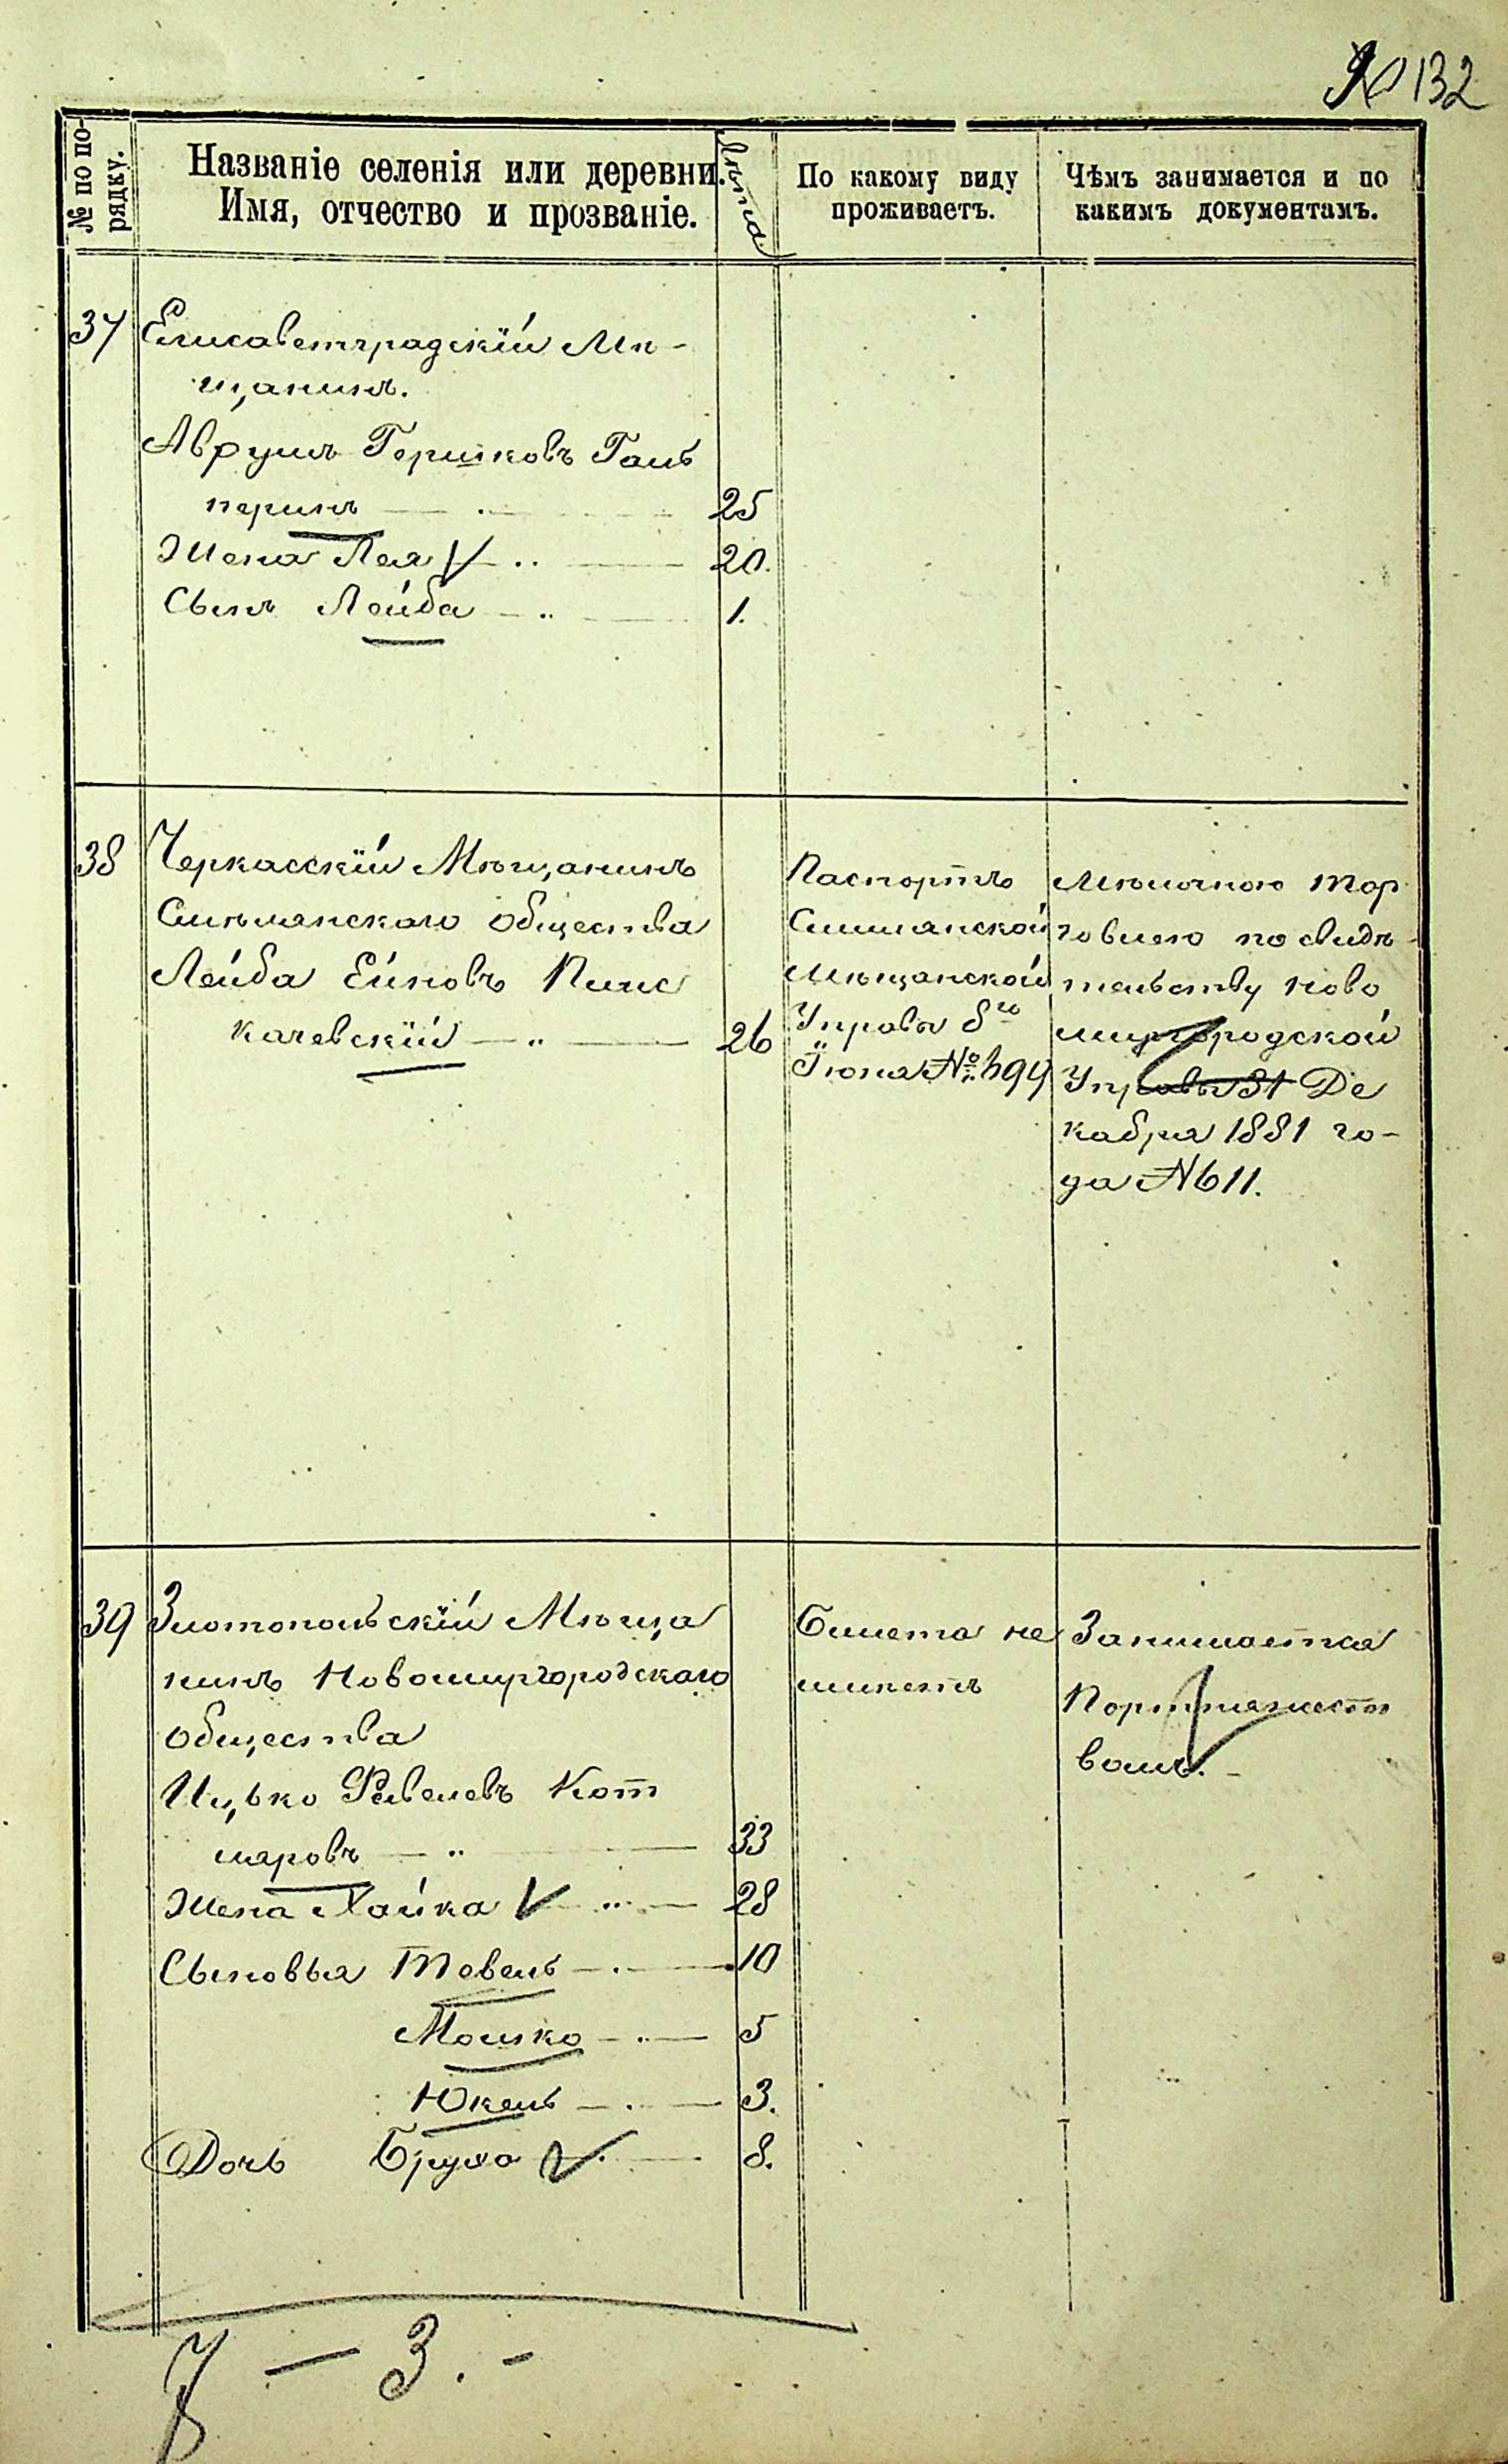 132
№ по по-
рядку.
Названіе селенія или деревни.
Имя, отчество и прозваніе.
Лѣта
По какому виду
проживаетъ.
Чѣмъ занимается и по
какимъ документамъ.
37
Елисаветградскій Мѣ-
щанинъ.
Аврумъ Гершковъ Галь
перинъ — 25
Жена Лея — 20.
Сынъ Лейба — 1.
38
Черкасскій Мѣщанинъ
Смѣлянскаго общества
Лейба Ейновъ
качевскій — 26
Паспортъ
Смилянской
Мѣщанской
Управы
Іюня №
Мѣлочною тор
говлею по свидѣ
тельству Ново
миргородской
Управы 31 Де
кабря 1881 го-
да № 611.
39
Златопольскій Мѣща
нинъ Новомиргородскаго
общества
Ицько Фавелевъ Кот
ляровъ — 33
Жена Хайка — 28
Сыновья Товель — 10
Мошко — 5
Юкель — 3.
Дочь Бруха — 8.
Билета не
имѣетъ
Занимается
Портняжест
вомъ. -
— 3. -